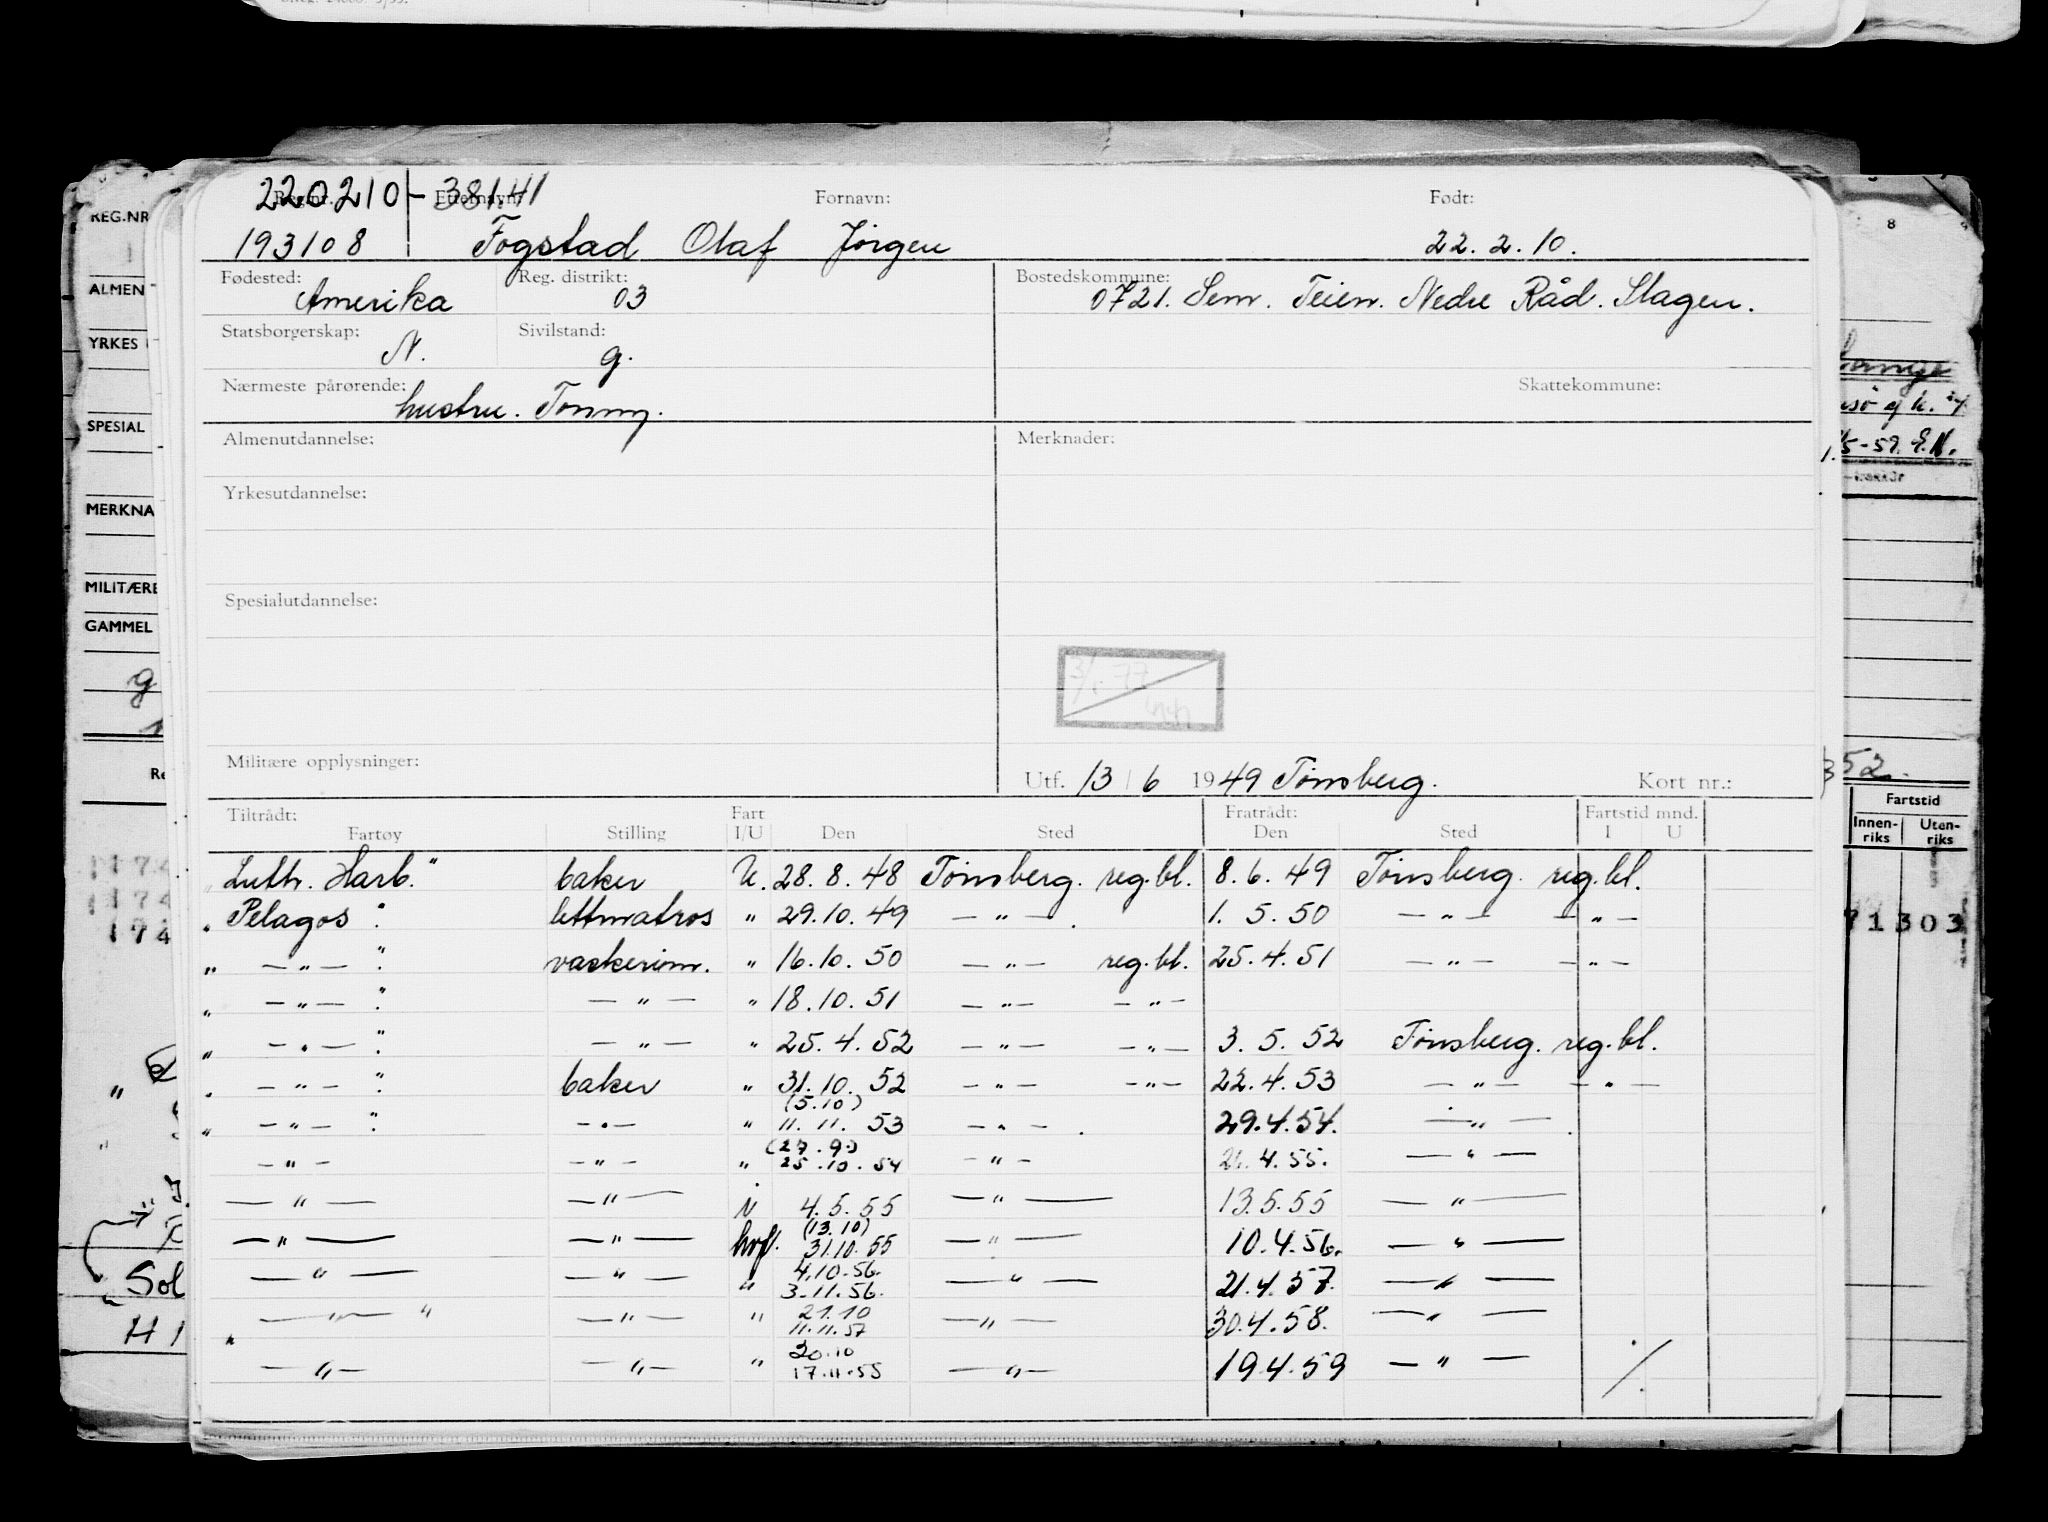 220210-38141
Reg.nr. Etternavn: Fornavn: Født:
193108 Fogstad Olaf Jørgen 22.2.10.
Fødested: Reg. distrikt: Bostedskommune:
Amerika 03 0721. Sem. Teien. Nedre Råd. Slagen.
Statsborgerskap: Sivilstand:
N. g.
Nærmeste pårørende: Skattekommune:
hustru. Tonny.
Almenutdannelse: Merknader:
Yrkesutdannelse:
Spesialutdannelse:
3/1.77
Militære opplysninger:
Utf. 13/6 1949 Tønsberg. Kort nr.:
Tiltrådt: Fart Fratrådt: Fartstid mnd.
Fartøy Stilling I/U Den Sted Den Sted I U
„ Luth. Harb." baker U. 28.8.48 Tønsberg. reg.bl. 8.6.49 Tønsberg. reg.bl.
„ Pelagos " lettmatros " 29.10.49 — " — . 1.5.50 — " — — " —
„ — " — " vaskerim. " 16.10.50 — " — reg.bl. 25.4.51 — " — — " —
„ — " — " — " — " 18.10.51 — " — — " —
„ — " — " — " — " 25.4.52 — " — — " — 3.5.52 Tønsberg. reg.bl.
„ — " — " baker " 31.10.52 — " — — " — 22.4.53 — " — — " —
(5.10)
„ — " — " — " — " 11.11.53 — " — . 29.4.54. — " — .
(27.9.)
— " — — " — " 25.10.54 — " — 4.55. — " —
— " — — " — i 4.5.55 — " — 13.5.55 — " —
(13.10)
— " — — " — hvf. 31.10.55 — " — 10.4.56. — " —
4.10.56.
— " — — " — " 3.11.56. — " — 21.4.57. — " —
21.10
„ — " — " — " — " 11.11.57 — " — 30.4.58. — " —
20.10
— " — — " — " 17.11.55 — " — 19.4.59 — " — ./.
REG.NR
ALMEN
YRKES
SPESIAL
MERKNA
MILITÆRE
GAMMEL
g
Re
174
174
174
Sol
H
8
15-59. E.N.
352.
Fartstid
Innen-riks Uten-riks
71303